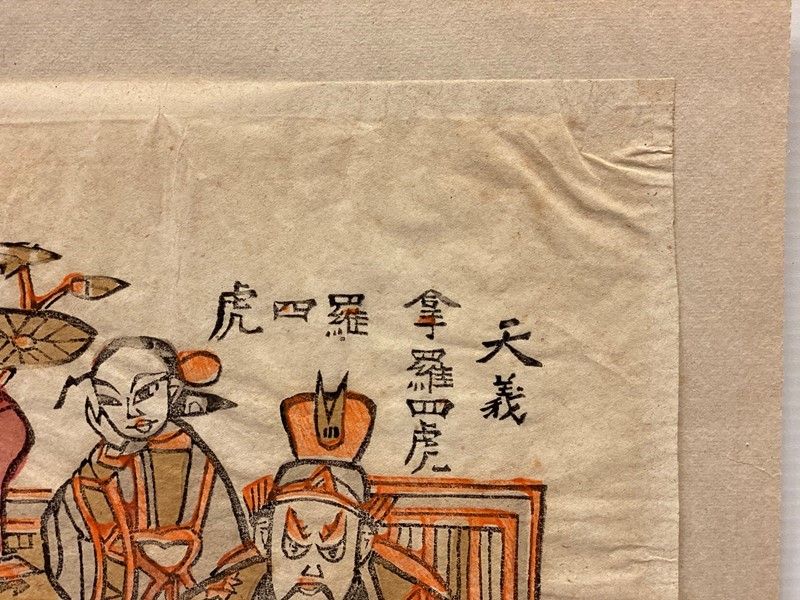 天義
拿羅四虎
羅四虎